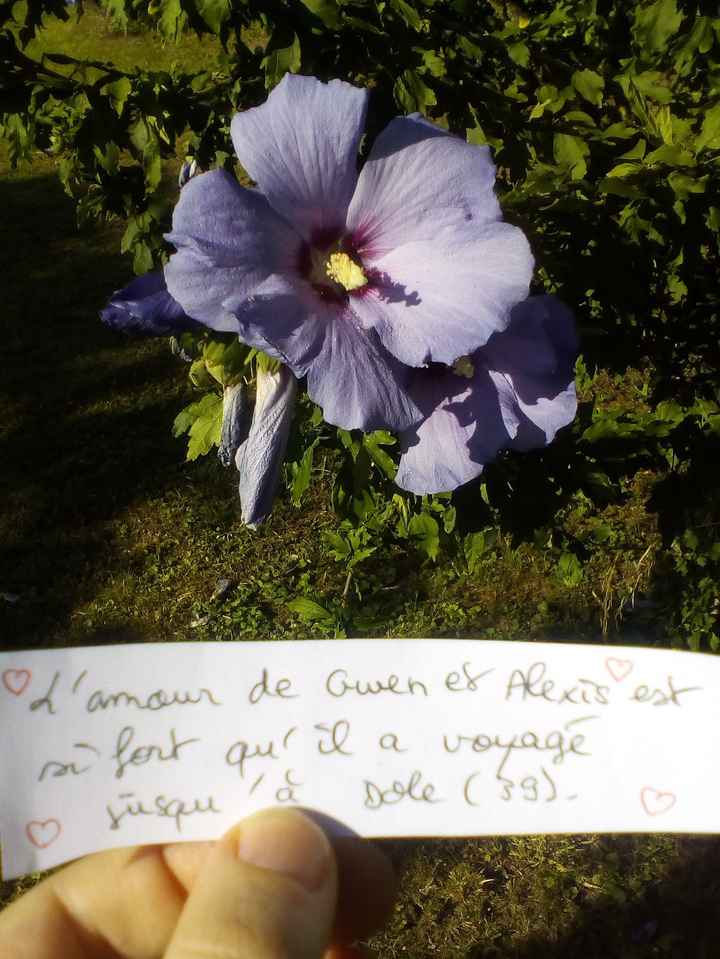 L'amour de Gwen et Alexis est
si fort qu'il a voyagé
jusqu'à Dole (39).